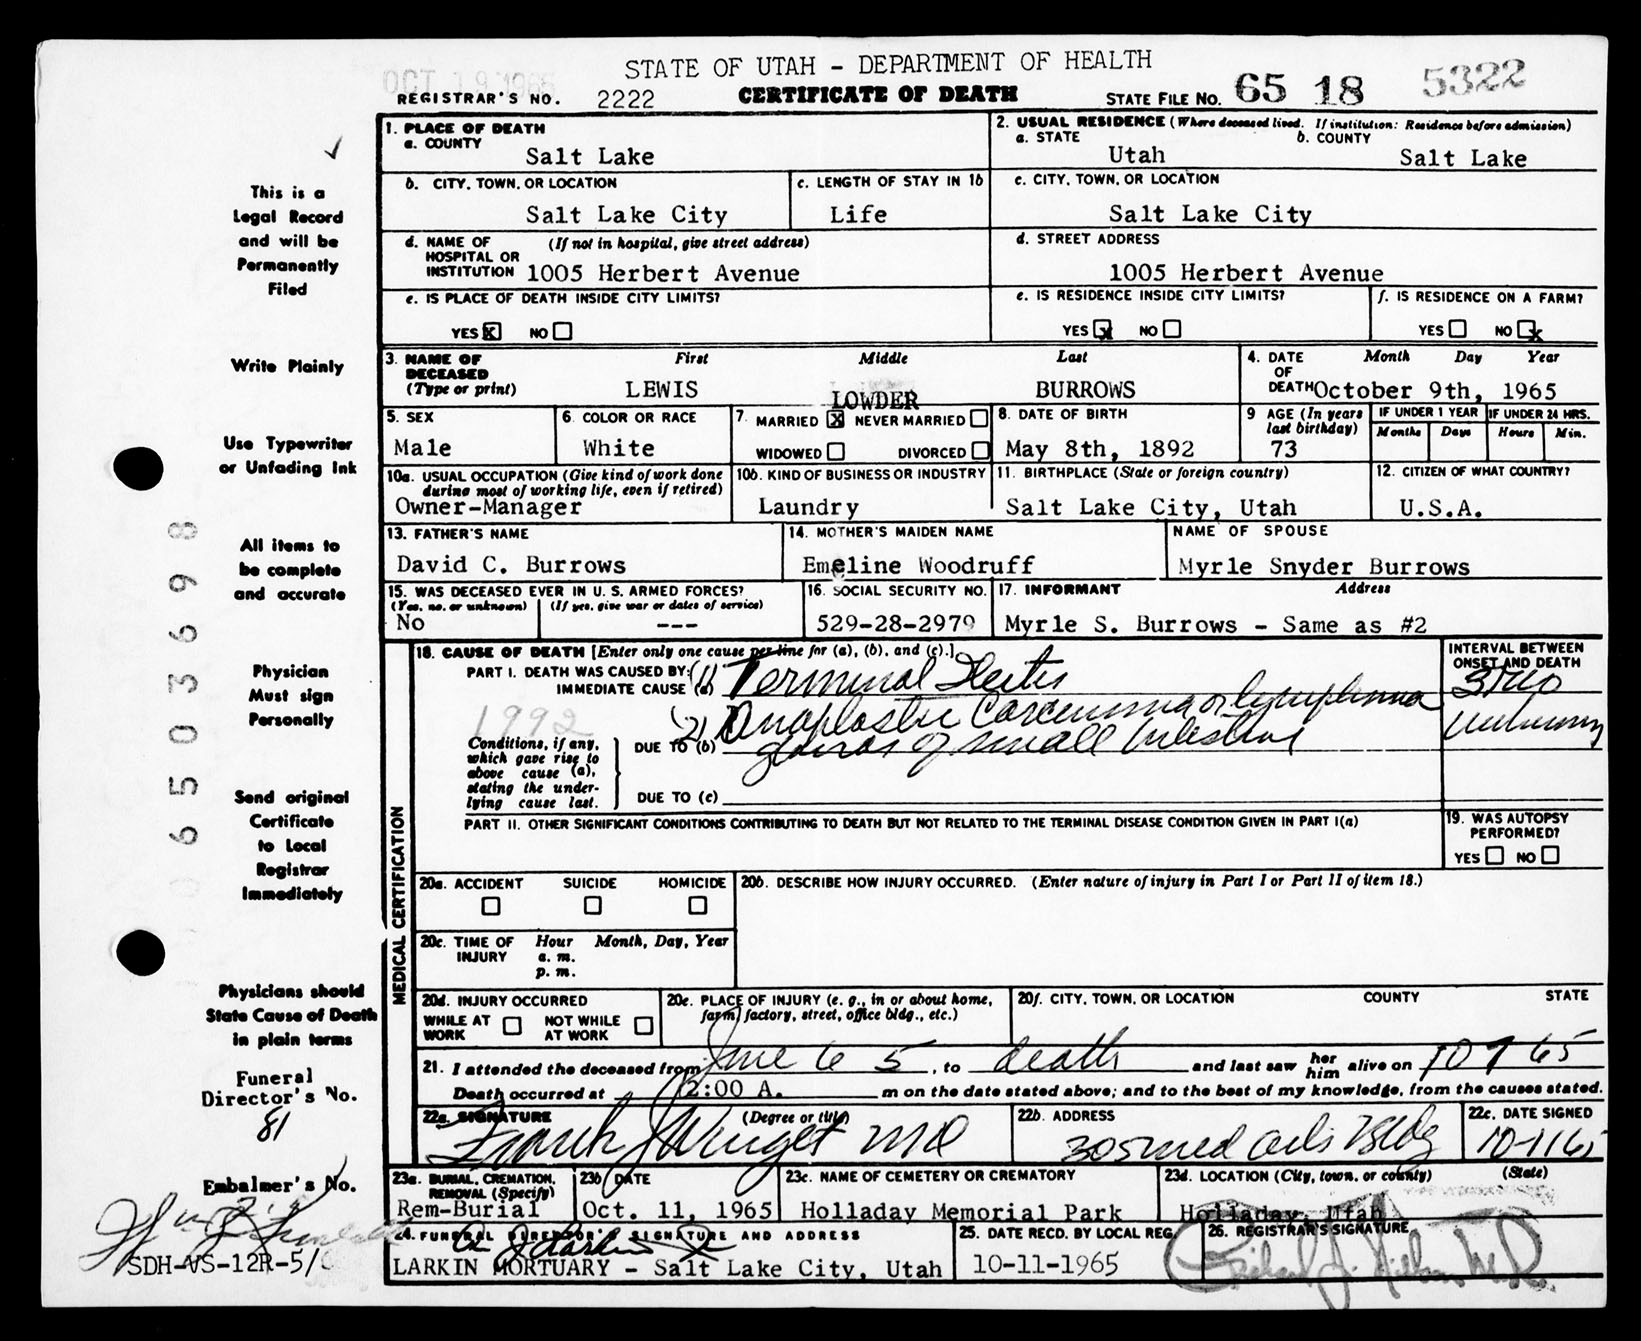 STATE OF UTAH - DEPARTMENT OF HEALTH
OCT 19 1965
REGISTRAR'S NO. 2222 CERTIFICATE OF DEATH STATE FILE NO. 65 18 5322
1. PLACE OF DEATH
a. COUNTY
Salt Lake
2. USUAL RESIDENCE (Where deceased lived. If institution: Residence before admission)
a. STATE b. COUNTY
Utah Salt Lake
b. CITY, TOWN, OR LOCATION
Salt Lake City
c. LENGTH OF STAY IN 1b
Life
c. CITY, TOWN, OR LOCATION
Salt Lake City
d. NAME OF HOSPITAL OR INSTITUTION (If not in hospital, give street address)
1005 Herbert Avenue
d. STREET ADDRESS
1005 Herbert Avenue
e. IS PLACE OF DEATH INSIDE CITY LIMITS?
YES X NO
e. IS RESIDENCE INSIDE CITY LIMITS?
YES X NO
f. IS RESIDENCE ON A FARM?
YES NO X
3. NAME OF DECEASED (Type or print) First Middle Last
LEWIS LOWDER BURROWS
4. DATE OF DEATH Month Day Year
October 9th, 1965
5. SEX
Male
6. COLOR OR RACE
White
7. MARRIED X NEVER MARRIED
WIDOWED DIVORCED
8. DATE OF BIRTH
May 8th, 1892
9 AGE (In years last birthday)
73
IF UNDER 1 YEAR
Months Days
IF UNDER 24 HRS.
Hours Min.
10a. USUAL OCCUPATION (Give kind of work done during most of working life, even if retired)
Owner-Manager
10b. KIND OF BUSINESS OR INDUSTRY
Laundry
11. BIRTHPLACE (State or foreign country)
Salt Lake City, Utah
12. CITIZEN OF WHAT COUNTRY?
U.S.A.
13. FATHER'S NAME
David C. Burrows
14. MOTHER'S MAIDEN NAME
Emeline Woodruff
NAME OF SPOUSE
Myrle Snyder Burrows
15. WAS DECEASED EVER IN U. S. ARMED FORCES?
(Yes, no, or unknown) (If yes, give war or dates of service)
No ---
16. SOCIAL SECURITY NO.
529-28-2979
17. INFORMANT Address
Myrle S. Burrows - Same as #2
MEDICAL CERTIFICATION
18. CAUSE OF DEATH [Enter only one cause per line for (a), (b), and (c).]
PART I. DEATH WAS CAUSED BY:
IMMEDIATE CAUSE (a) (1) Terminal Ileitis
INTERVAL BETWEEN ONSET AND DEATH
3 mo
1992
(2) Anaplastic Carcinoma or lymphoma
unknown
Conditions, if any, which gave rise to above cause (a), stating the underlying cause last.
DUE TO (b) glands of small intestine
DUE TO (c)
PART II. OTHER SIGNIFICANT CONDITIONS CONTRIBUTING TO DEATH BUT NOT RELATED TO THE TERMINAL DISEASE CONDITION GIVEN IN PART I(a)
19. WAS AUTOPSY PERFORMED?
YES NO
20a. ACCIDENT SUICIDE HOMICIDE
20b. DESCRIBE HOW INJURY OCCURRED. (Enter nature of injury in Part I or Part II of item 18.)
20c. TIME OF INJURY Hour Month, Day, Year
a. m.
p. m.
20d. INJURY OCCURRED
WHILE AT WORK NOT WHILE AT WORK
20e. PLACE OF INJURY (e. g., in or about home, farm, factory, street, office bldg., etc.)
20f. CITY, TOWN, OR LOCATION COUNTY STATE
21. I attended the deceased from June 6 5, to death and last saw her him alive on 10 7 65
Death occurred at 12:00 A. m on the date stated above; and to the best of my knowledge, from the causes stated.
22a. SIGNATURE (Degree or title)
Frank J Winget MD
22b. ADDRESS
305 Med Arts Bldg
22c. DATE SIGNED
10-11 65
23a. BURIAL, CREMATION, REMOVAL (Specify)
Rem-Burial
23b DATE
Oct. 11, 1965
23c. NAME OF CEMETERY OR CREMATORY
Holladay Memorial Park
23d. LOCATION (City, town, or county) (State)
Holladay, Utah
24. FUNERAL DIRECTOR'S SIGNATURE AND ADDRESS
LARKIN MORTUARY - Salt Lake City, Utah
25. DATE RECD. BY LOCAL REG.
10-11-1965
26. REGISTRAR'S SIGNATURE
This is a
Legal Record
and will be
Permanently
Filed
Write Plainly
Use Typewriter
or Unfading Ink
All items to
be complete
and accurate
Physician
Must sign
Personally
Send original
Certificate
to Local
Registrar
Immediately
Physicians should
State Cause of Death
in plain terms
Funeral
Director's No.
81
Embalmer's No.
SDH-VS-12R-5/
6503698